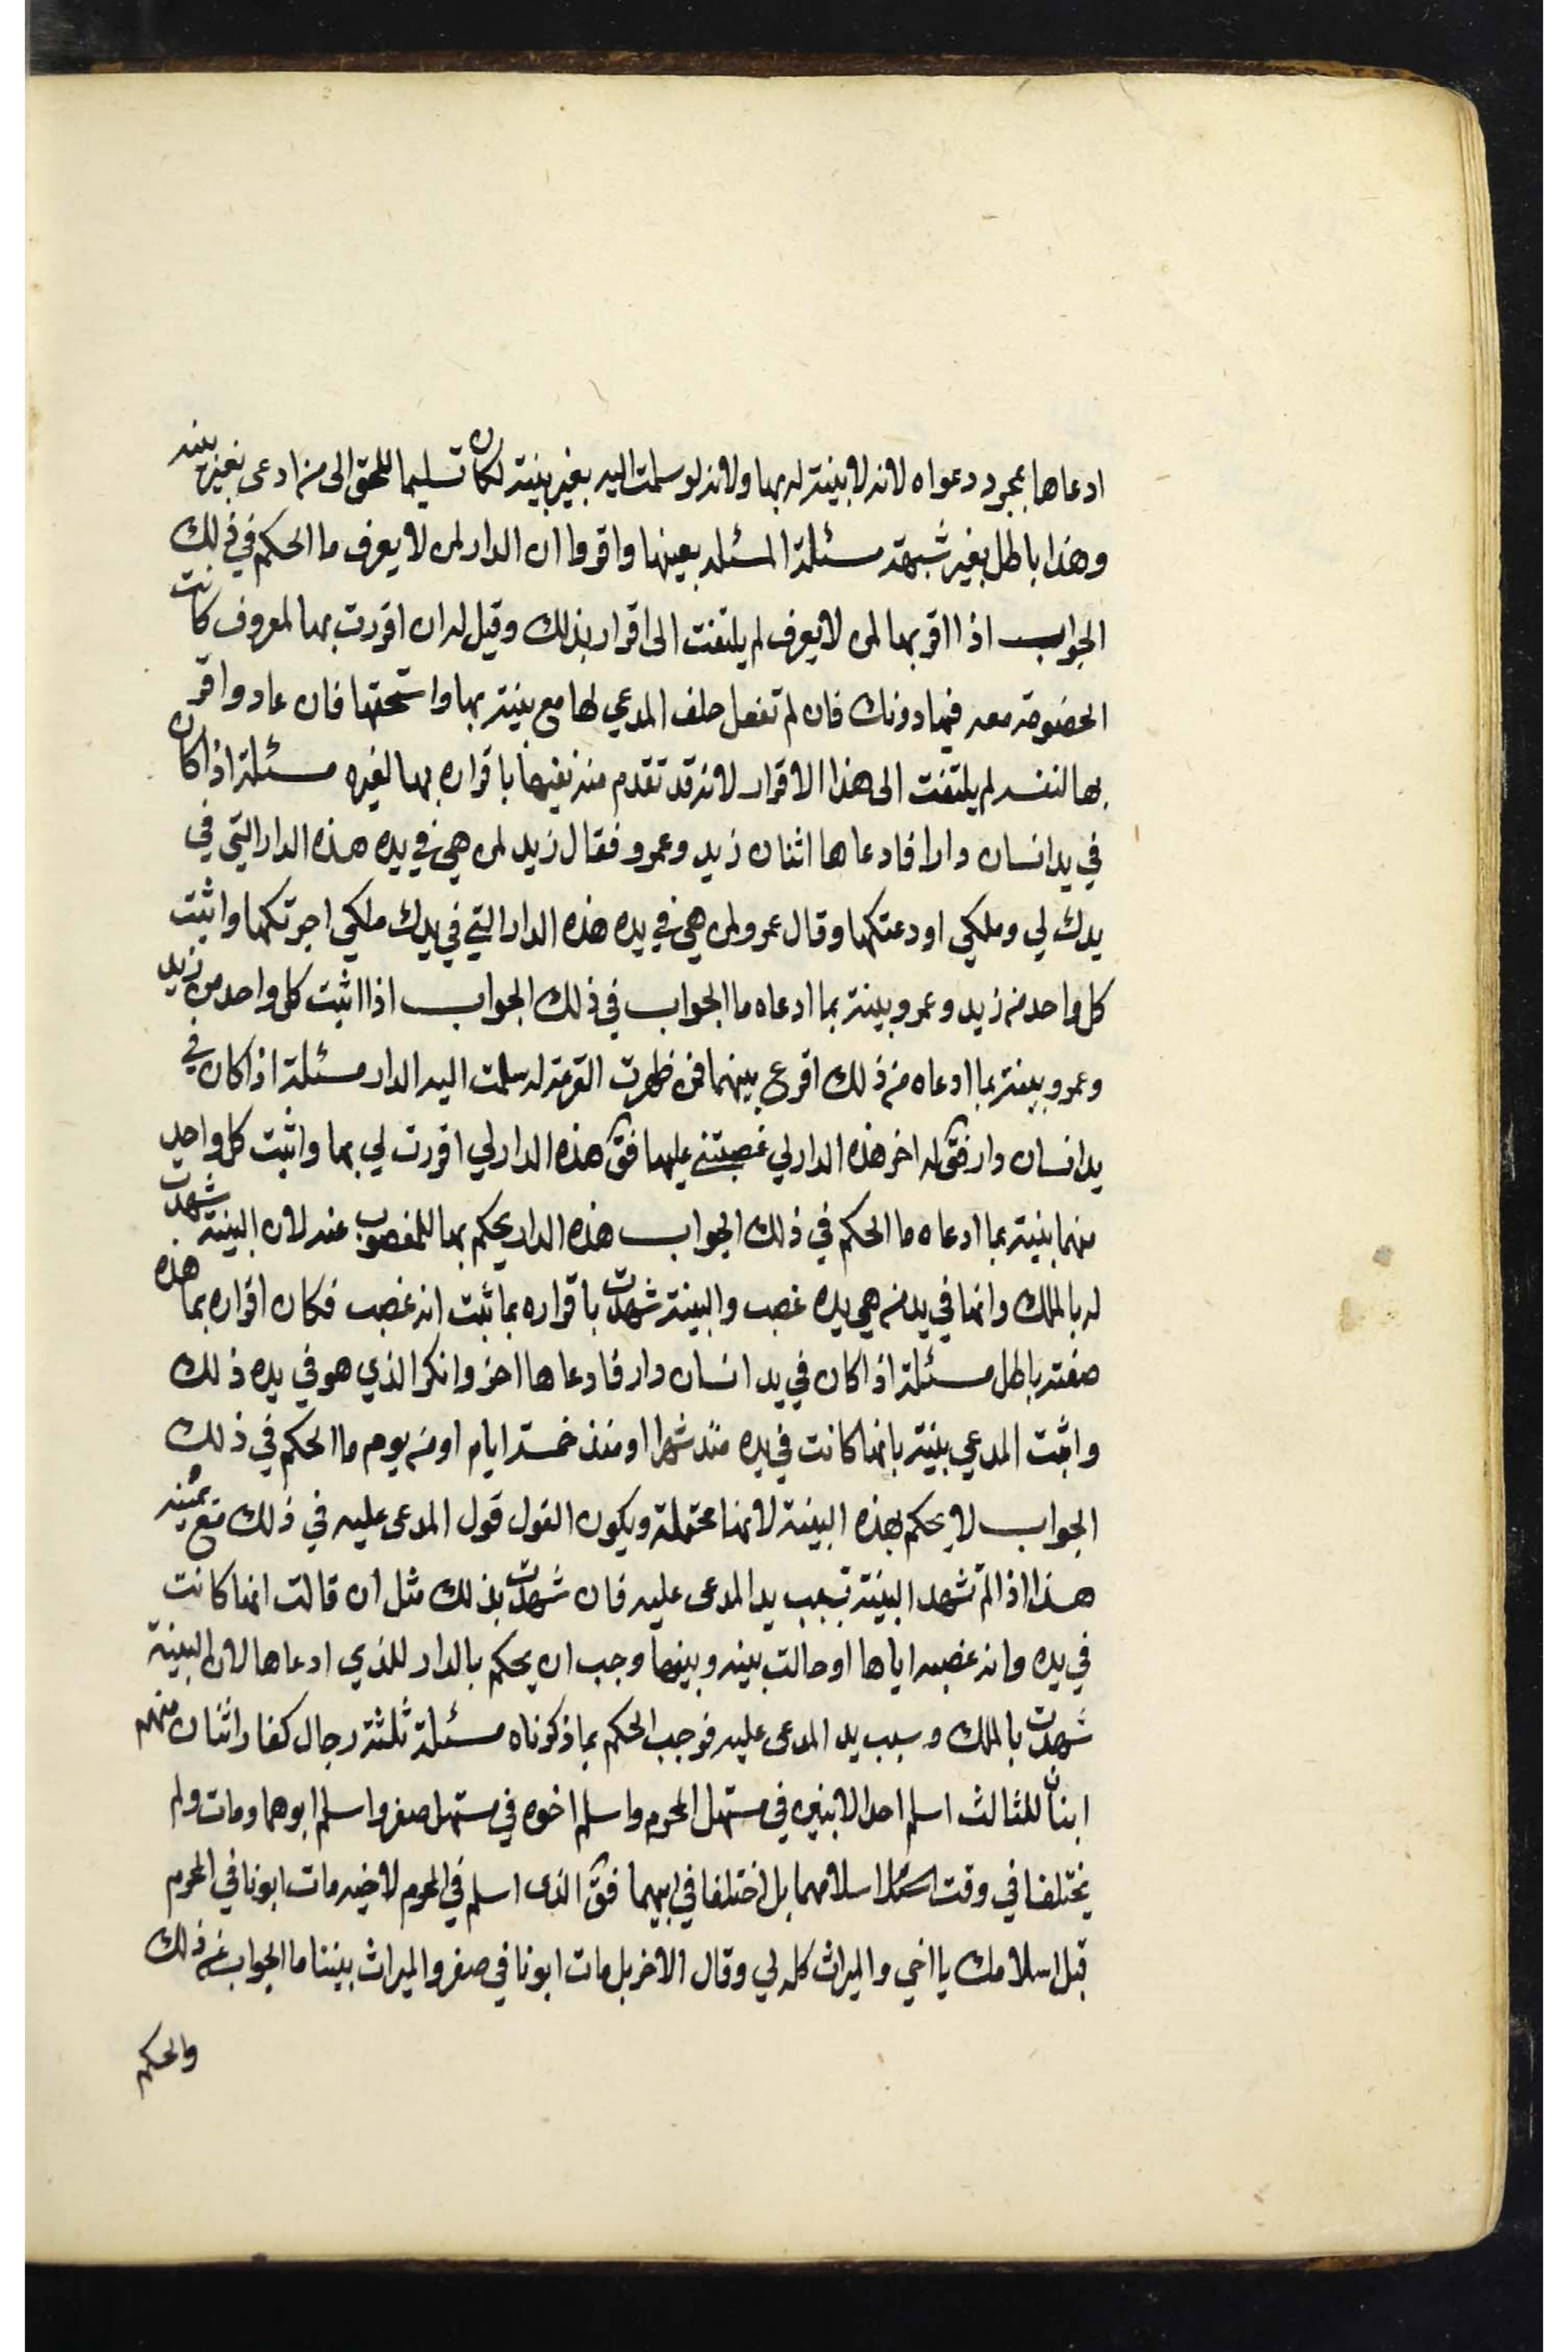 ادعاها بمجرد دعواه لانه لا بينة له بها ولانه لو سلمت اليه بغير بينة لكان تسليما للحق الى من ادعى بغير بينه
وهذا باطل بغير شبهة مسئلة المسئله بعينها واقروا ان الدار لمن لا يعرف ما الحكم في ذلك
الجواب اذا اقر بها لمن لا يعرف لم يلتفت الى اقرار بذلك وقيل له ان اقررت بها لمعروف كانت
الخصومة معه فيها دونك فان لم تفعل حلف المدعي لها مع بينة بها واستحقها فان عاد واقر
بها لنفسه لم يلتفت الى هذا الاقرار لانه قد تقدم منه نفيها باقراره بها لغيره مسئلة اذا كان
في يد انسان دارا فادعاها اثنان زيد وعمرو فقال زيد لمن هي في يده هذه الدار التي في
يدك لي وملكي اودعتكها وقال عمرو لمن هي في يده هذه الدار التي في يدك ملكي اجرتكها واثبت
كل واحد من زيد وعمرو بينة بما ادعاه ما الجواب في ذلك الجواب اذا اثبت كل واحد من زيد
وعمرو بينة بما ادعاه من ذلك اقرع بينهما فمن ظهرت القرعة له سلمت اليه الدار مسئلة اذا كان في
يد انسان دار فق له اخر هذه الدار لي غصبتني عليها فق هذه الدار لي اقررت لي بها واثبت كل واحد
منهما بينة بما ادعاه ما الحكم في ذلك الجواب هذه الدار يحكم بها للمغصوب عنه لان البينة شهدت
له بالملك وانها في يد من هي يده غصب والبينة شهدت باقراره بما ثبت انه غصب فكان اقراره بما هذه
صفته باطل مسئلة اذا كان في يد انسان دار فادعاها اخر وانكر الذي هو في يده ذلك
واثبت المدعي بينة بانها كانت في يده منذ شهر او منذ خمسة ايام او من يوم ما الحكم في ذلك
الجواب لا يحكم بهذه البينة لانها محتملة ويكون القول قول المدعى عليه في ذلك مع يمينه
هذا اذا لم تشهد البينة بسبب يد المدعى عليه فان شهدت بذلك مثل ان قالت انها كانت
في يده وانه غصبه اياها او حالت بينه وبينها وجب ان يحكم بالدار للذي ادعاها لان البينة
شهدت بالملك وسبب يد المدعى عليه فوجب الحكم بما ذكرناه مسئلة ثلثة رجال كفار اثنان منهم
ابنان للثالث اسلم احد الابنين في مستهل المحرم واسلم اخوه في مستهل صفر واسلم ابوهما ومات ولم
يختلفا في وقت اسلامهما بل اختلفا في ابيهما فق الذى اسلم في المحرم لاخيه مات ابونا في المحرم
قبل اسلامك يا اخي والميراث كله لي وقال الاخر بل مات ابونا في صفر والميراث بيننا ما الجواب عن ذلك
والحكم